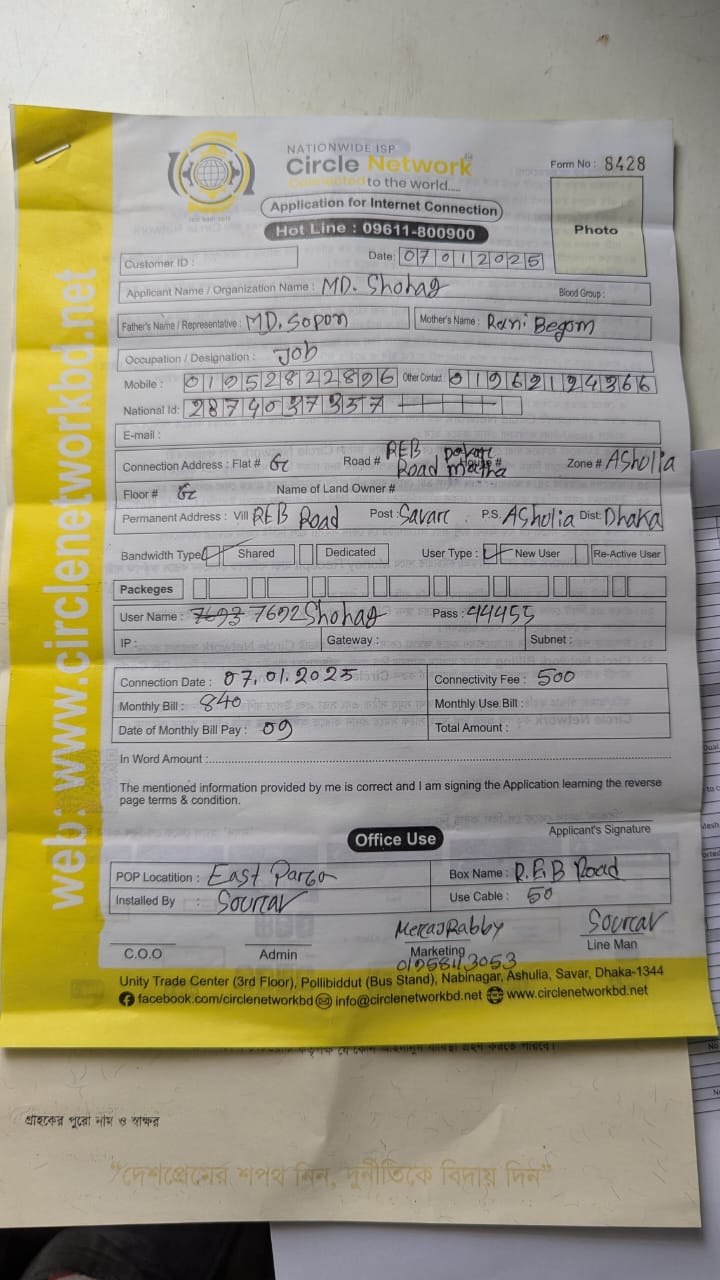 NATIONWIDE ISP
Circle Network
Connected to the world.....
Form No : 8428
Application for Internet Connection
Hot Line : 09611-800900
Photo
Customer ID :
Date: 07012025
Applicant Name / Organization Name : MD. Shohag Blood Group :
Father's Name / Representative : MD. Sopon Mother's Name : Rani Begom
Occupation / Designation : Job
Mobile : 01952822896 Other Contact : 01962124366
National Id: 2874037357
E-mail :
Connection Address : Flat # G Road # REB Road House # Zone # Asholia
Floor # G Name of Land Owner #
Permanent Address : Vill REB Road Post : Savarc P.S. Asholia Dist: Dhaka
Bandwidth Type Shared Dedicated User Type : New User Re-Active User
Packeges
User Name : 7693 7692Shohag Pass : 44455
IP : Gateway : Subnet :
Connection Date : 07.01.2025 Connectivity Fee : 500
Monthly Bill : 840 Monthly Use Bill :
Date of Monthly Bill Pay : 09 Total Amount :
In Word Amount :
The mentioned information provided by me is correct and I am signing the Application learning the reverse
page terms & condition.
Applicant's Signature
Office Use
POP Locatition : East Pargo Box Name : R.E.B Road
Installed By : Sourcav Use Cable : 50
MerajRabby Sourcav
C.O.O Admin Marketing Line Man
01958113053
Unity Trade Center (3rd Floor), Pollibiddut (Bus Stand), Nabinagar, Ashulia, Savar, Dhaka-1344
facebook.com/circlenetworkbd info@circlenetworkbd.net www.circlenetworkbd.net
web: www.circlenetworkbd.net
গ্রাহকের পুরো নাম ও স্বাক্ষর
“দেশপ্রেমের শপথ নিন, দুর্নীতিকে বিদায় দিন”